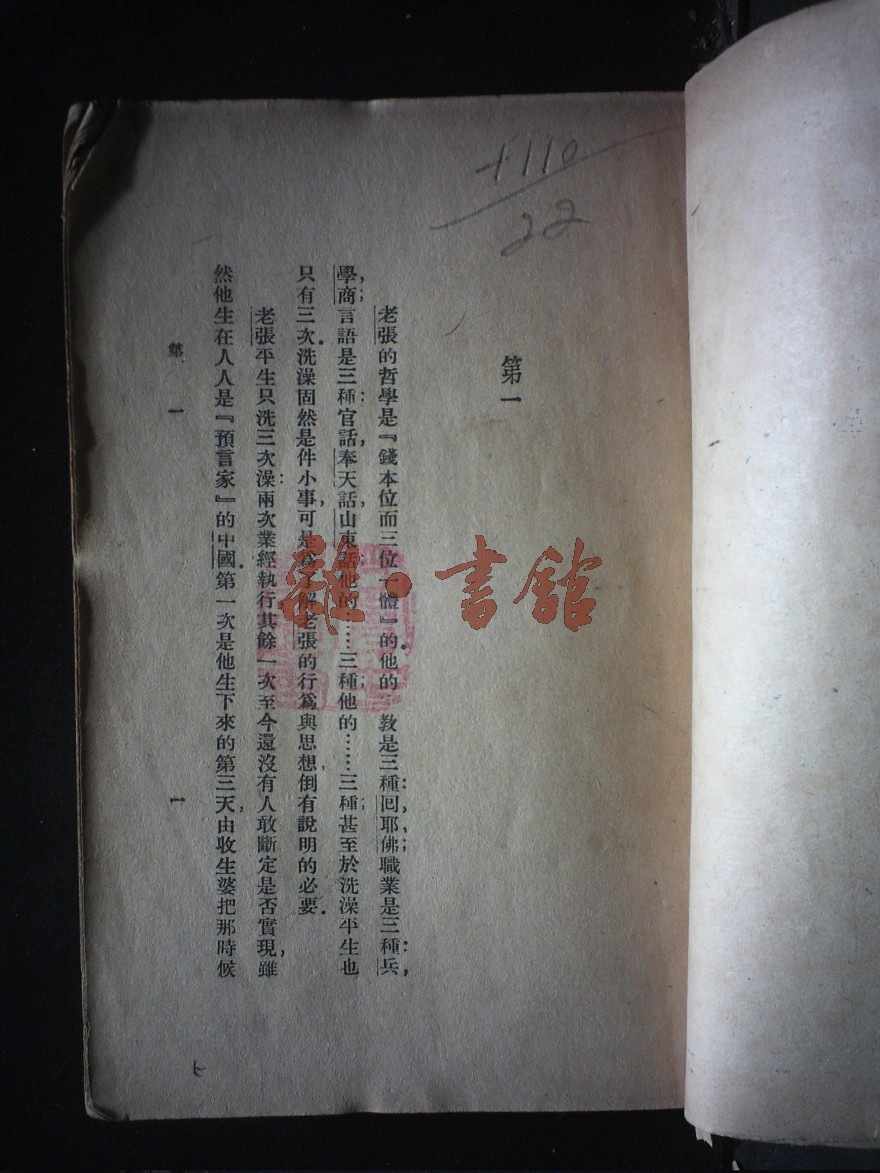 +110
22
第一
老張的哲學是『錢本位而三位一體』的.他的三教是三種:回,耶,佛;職業是三種:兵,
學,商;言語是三種:官話,奉天話,山東話;他的……三種;他的……三種;甚至於洗澡平生也
只有三次.洗澡固然是件小事,可是爲了解老張的行爲與思想,倒有說明的必要.
老張平生只洗三次澡:兩次業經執行,其餘一次至今還沒有人敢斷定是否實現,雖
然他生在人人是『預言家』的中國.第一次是他生下來的第三天,由收生婆把那時候
第一
一
雜·書館